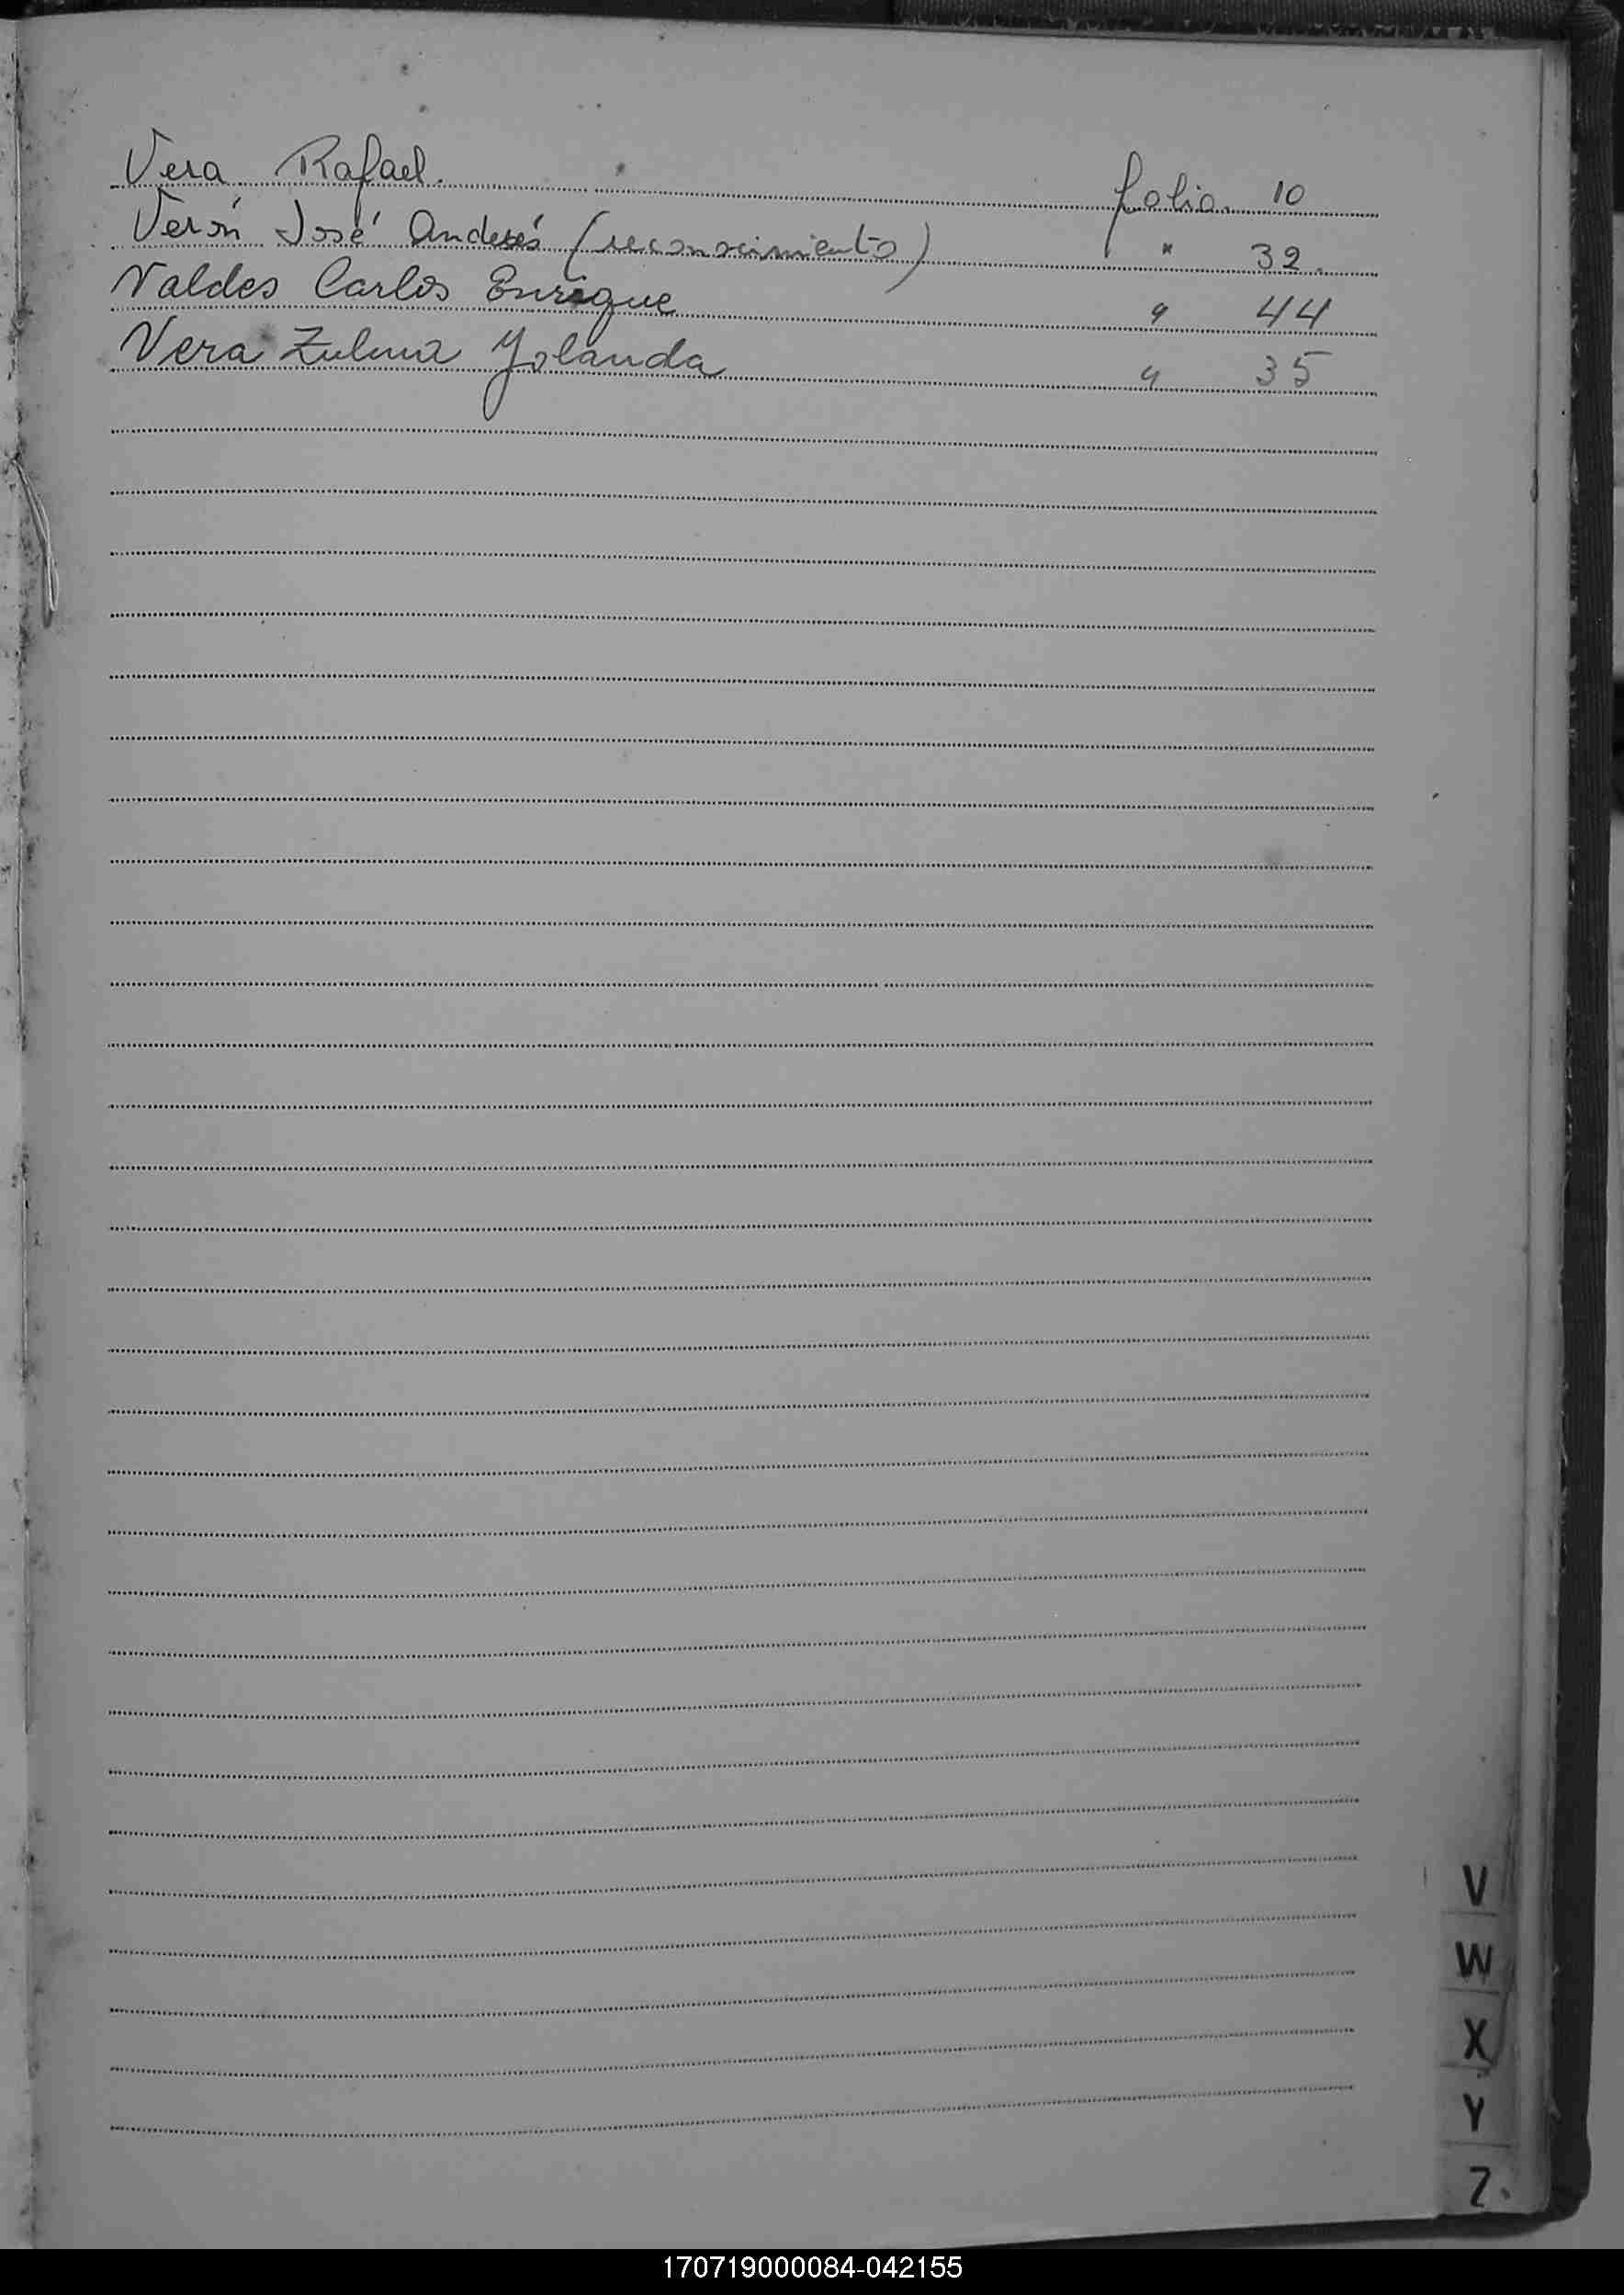 Vera Rafael. folio. 10
Verón José Anderés (reconocimiento) " 32.
Valdes Carlos Enrique " 44
Vera Zulma Yolanda " 35
V
W
X
Y
Z
170719000084-042155